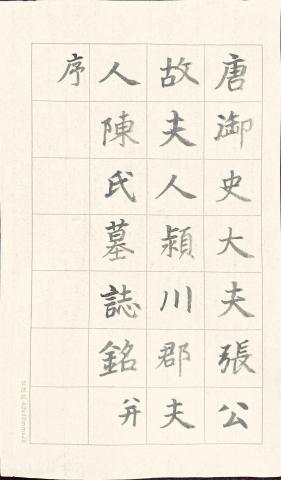 唐御史大夫張公
故夫人潁川郡夫
人陳氏墓誌銘并
序